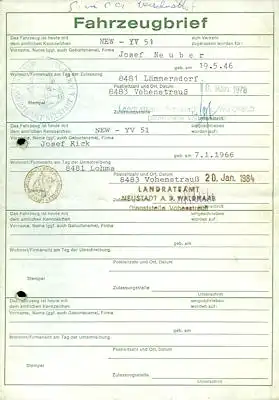 Fahrzeugbrief
Das Fahrzeug ist heute mit dem amtlichen Kennzeichen NEW - YV 51 zum Verkehr zugelassen worden für:
Vorname, Name (ggf. auch Geburtsname), Firma
Josef Neuber
geb. am 19.5.46
Wohnort/Firmensitz am Tag der Zulassung
8481 Lämmersdorf.
Postleitzahl und Ort, Datum
8483 Vohenstrauß
Stempel
Zulassungsstelle
Das Fahrzeug ist heute mit dem amtlichen Kennzeichen NEW - YV 51 umgeschrieben worden auf:
Vorname, Name (ggf. auch Geburtsname), Firma
Josef Rick
geb. am 7.1.1966
Wohnort/Firmensitz am Tag der Umschreibung
8481 Lohma
Postleitzahl und Ort, Datum
8483 Vohenstrauß 20. Jan. 1984
LANDRATSAMT
NEUSTADT A. D. WALDNAAB
Dienststelle Vohenstrauß
Das Fahrzeug ist heute mit dem amtlichen Kennzeichen umgeschrieben worden auf:
Vorname, Name (ggf. auch Geburtsname), Firma
geb. am
Wohnort/Firmensitz am Tag der Umschreibung
Postleitzahl und Ort, Datum
Stempel
Zulassungsstelle
Unterschrift
Das Fahrzeug ist heute mit dem amtlichen Kennzeichen umgeschrieben worden auf:
Vorname, Name (ggf. auch Geburtsname), Firma
geb. am
Wohnort/Firmensitz am Tag der Umschreibung
Postleitzahl und Ort, Datum
Stempel
Zulassungsstelle
Unterschrift